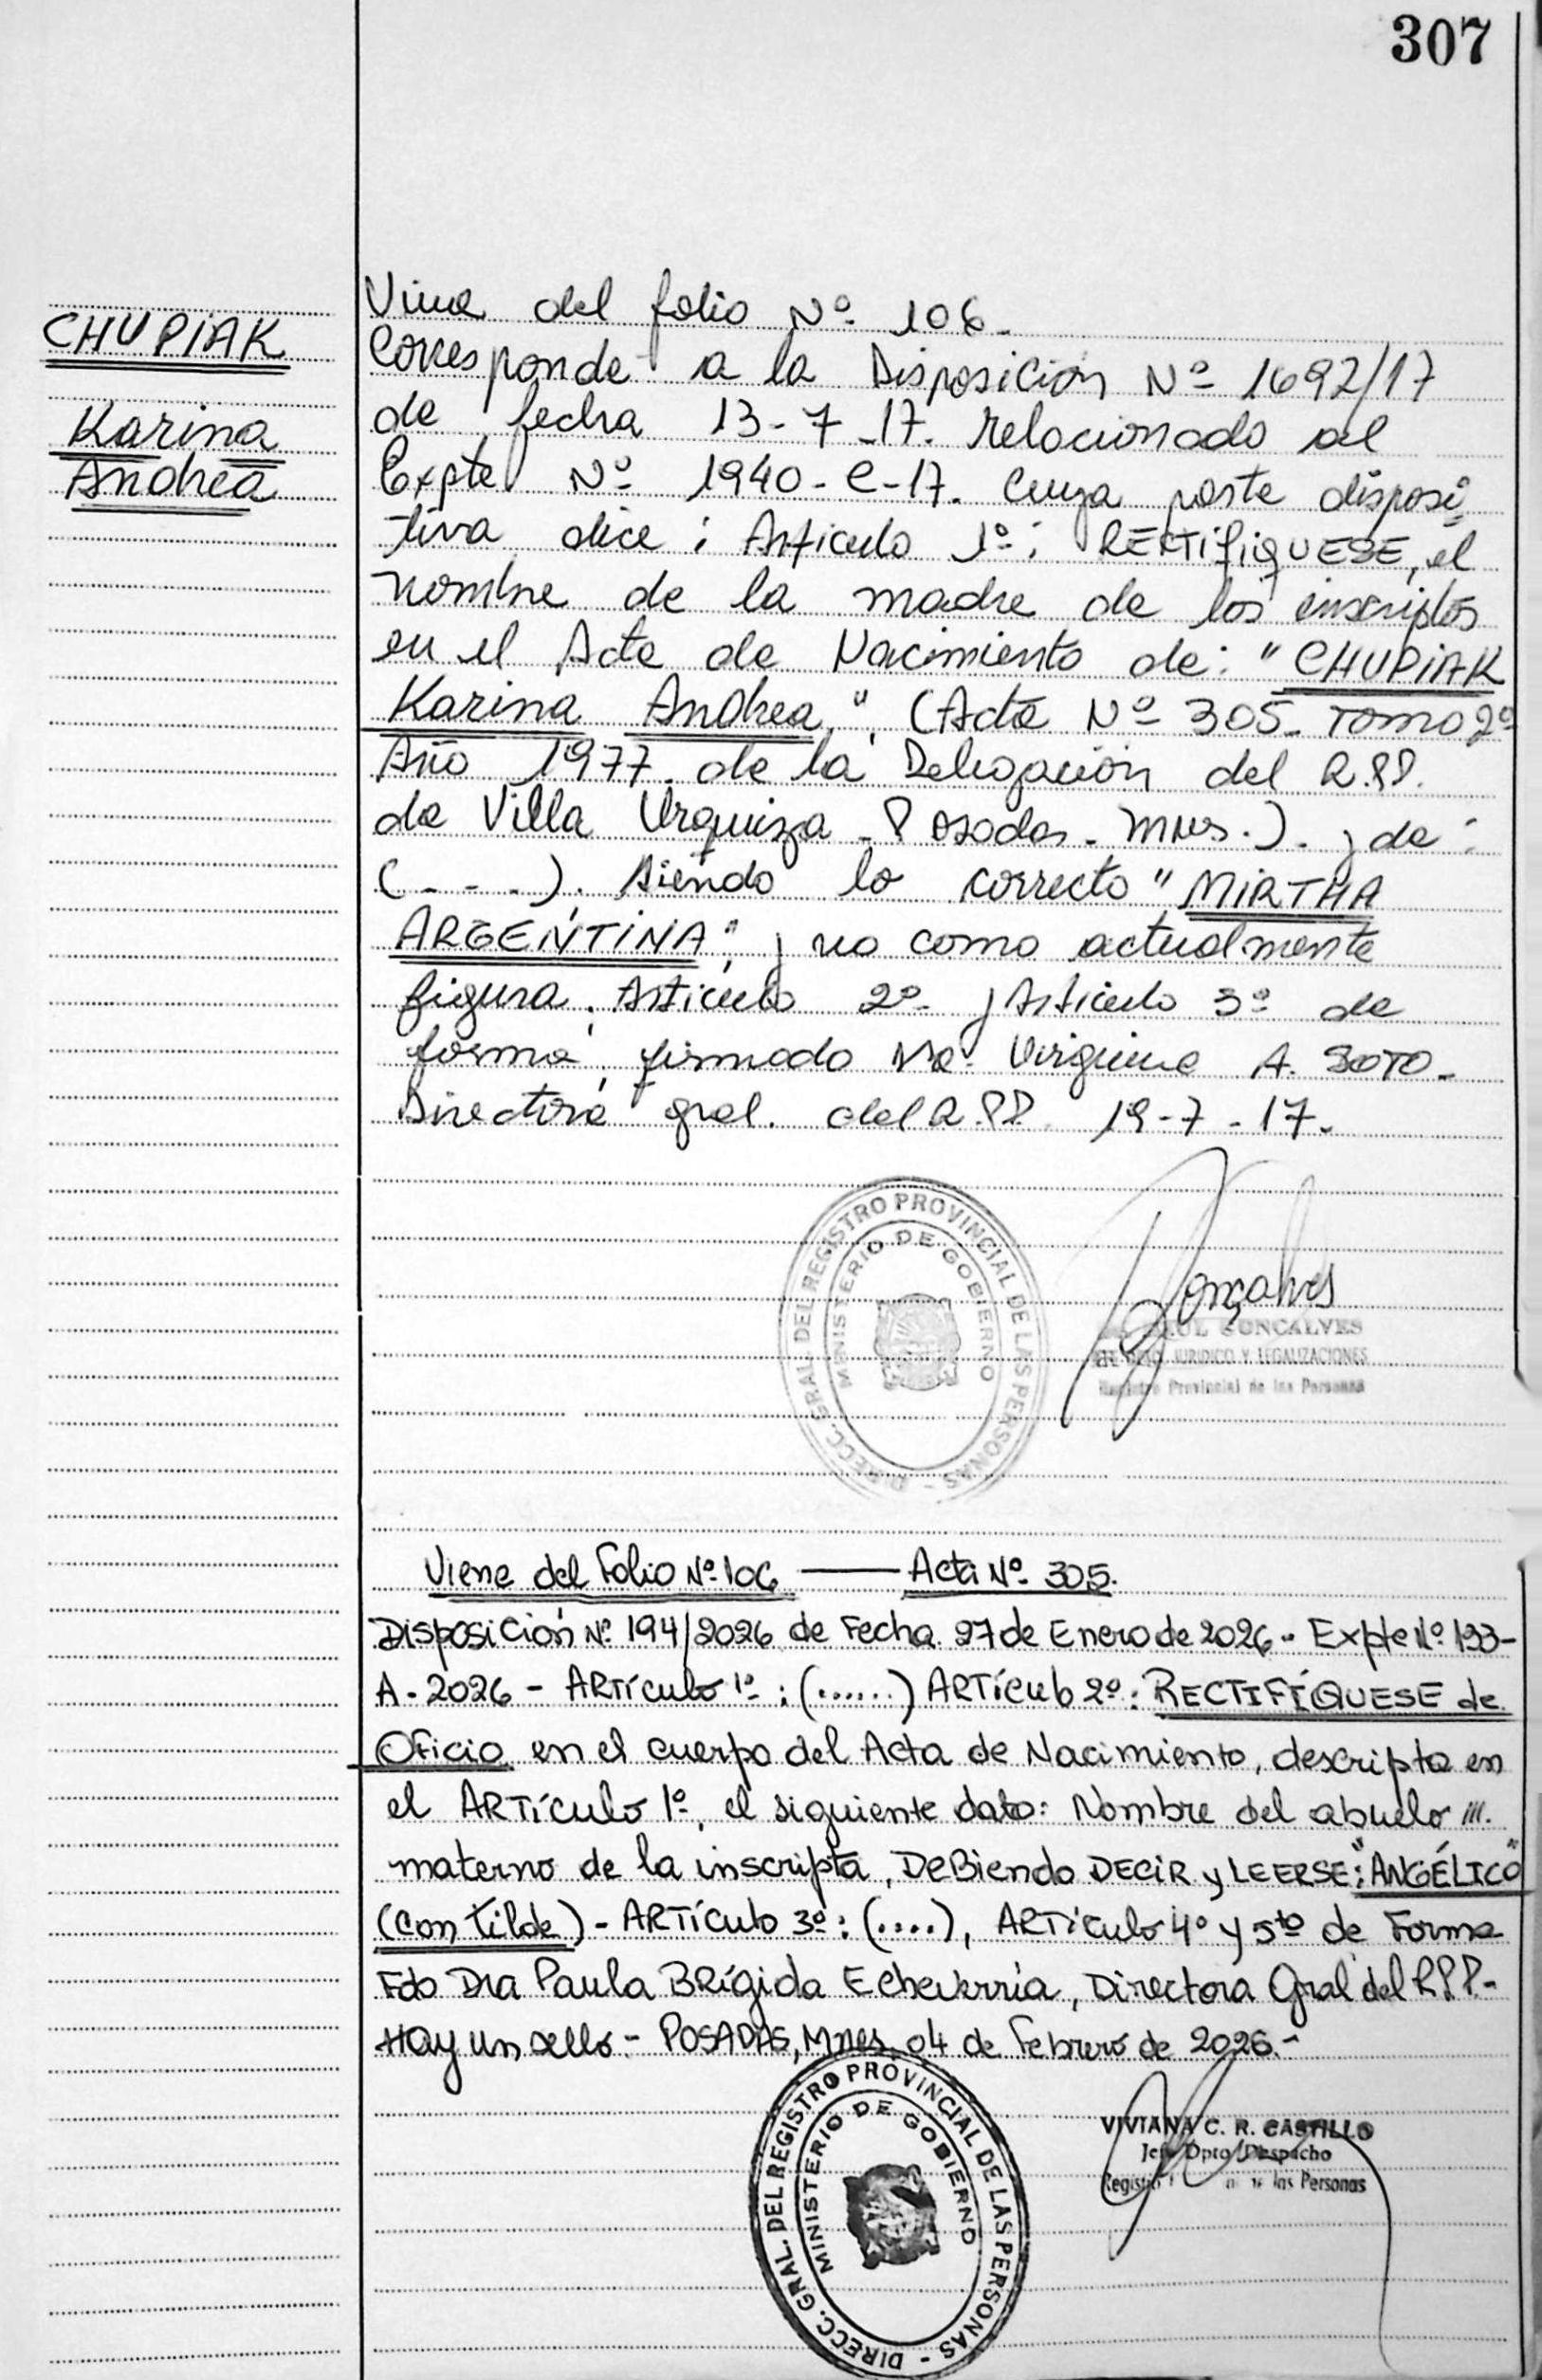 307
CHUPIAK
Karina
Andrea
Viene del folio Nº 106.
Corresponde a la Disposición Nº 1692/17
de fecha 13-7-17. relacionado al
Expte Nº 1940-C-17. Cuya parte disposi
tiva dice: Articulo 1º: RECTIFIQUESE, el
nombre de la madre de los inscriptos
en el Acta de Nacimiento de: "CHUPIAK
Karina Andrea", (Acta Nº 305- Tomo 2º
Año 1977. de la Delegación del R.P.P.
de Villa Urquiza - Posadas - Mnes.). y de:
(- - -). Siendo lo correcto "MIRTHA
ARGENTINA"; y no como actualmente
figura. Articulo 2º y Articulo 3º de
forma, firmado Virginia A. SOTO-
Directora gral. del R.P.P. 19-7-17.
DIRECC. GRAL. DEL REGISTRO PROVINCIAL DE LAS PERSONAS -
MINISTERIO DE GOBIERNO
Gonçalves
GONCALVES
JURIDICO Y LEGALIZACIONES
Registro Provincial de las Personas
Viene del Folio Nº 106 —— Acta Nº 305.
Disposición Nº 194/2026 de Fecha 27 de Enero de 2026- Expte Nº 193-
A-2026 - Artículo 1º: (......) Artículo 2º: RECTIFÍQUESE de
Oficio en el cuerpo del Acta de Nacimiento, descripta en
el Artículo 1º, el siguiente dato: Nombre del abuelo ///.
materno de la inscripta, DeBiendo DECIR y LEERSE: "ANGÉLICO"
(con tilde) - Artículo 3º: (....), Artículo 4º y 5to de Forma
Fdo Dra Paula Brígida Echeverría, Directora Gral del R.P.P.-
Hay un sello - POSADAS, Mnes, 04 de Febrero de 2026.-
DIRECC. GRAL. DEL REGISTRO PROVINCIAL DE LAS PERSONAS -
MINISTERIO DE GOBIERNO
VIVIANA C. R. CASTILLO
Jefe Dpto Despacho
las Personas